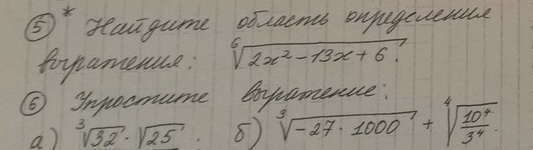 ⑤* Найдите область определения
выражения: ⁶√(2x² − 13x + 6).
⑥ Упростите выражение:
а) ³√32 · √25. б) ³√(−27 · 1000) + ⁴√(10⁴/3⁴).